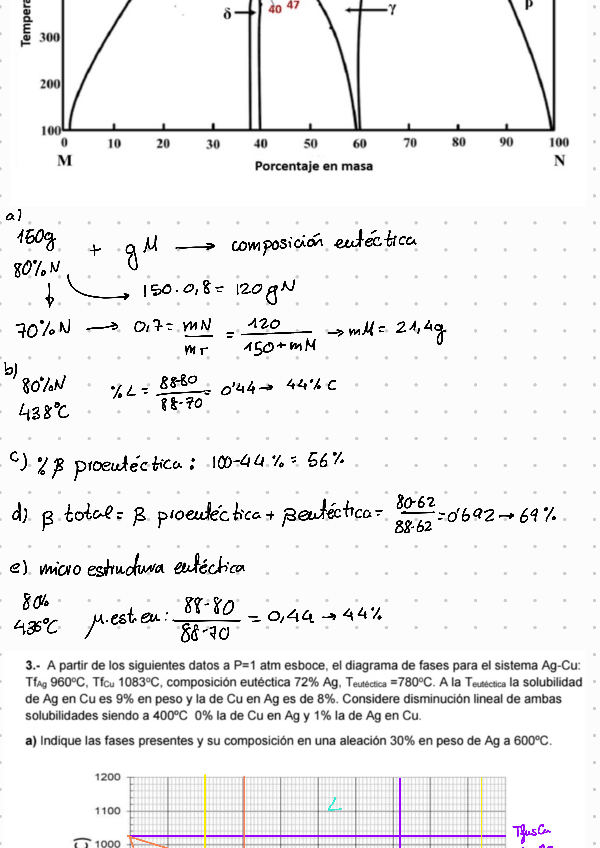 Tempera
300
200
100
δ
40 47
γ
β
0 10 20 30 40 50 60 70 80 90 100
M N
Porcentaje en masa
a)
150g + g M → composición eutéctica
80% N
→ 150·0,8 = 120 g N
70% N → 0,7 = mN/mT = 120/150+mM → mM = 21,4g
b)
80% N %L = 88-80/88-70 = 0'44 → 44% C
438°C
c) % β proeutéctica : 100-44% = 56%
d) β total = β proeutéctica + β eutéctica = 80-62/88-62 = 0'692 → 69%
e) micro estructura eutéctica
80%
436°C μ.est.eu : 88-80/88-70 = 0,44 → 44%
3.- A partir de los siguientes datos a P=1 atm esboce, el diagrama de fases para el sistema Ag-Cu:
TfAg 960ºC, TfCu 1083ºC, composición eutéctica 72% Ag, Teutéctica =780ºC. A la Teutéctica la solubilidad
de Ag en Cu es 9% en peso y la de Cu en Ag es de 8%. Considere disminución lineal de ambas
solubilidades siendo a 400ºC 0% la de Cu en Ag y 1% la de Ag en Cu.
a) Indique las fases presentes y su composición en una aleación 30% en peso de Ag a 600ºC.
1200
1100
L
TfusCu
1000